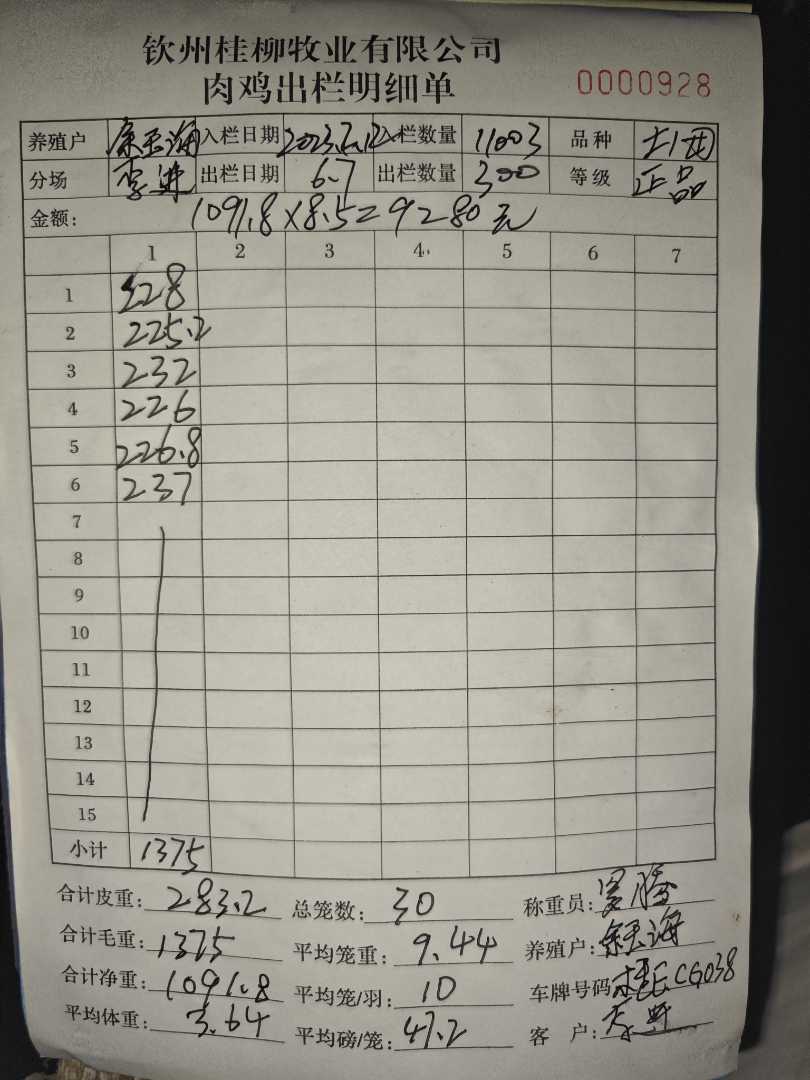 钦州桂柳牧业有限公司
肉鸡出栏明细单 0000928
养殖户 入栏日期 入栏数量 11003 品种
分场 李进 出栏日期 6.7 出栏数量 300 等级 正品
金额: 1091.8×8.5=9280元
1 2 3 4 5 6 7
1 228
2 225.2
3 232
4 226
5 226.8
6 237
7
8
9
10
11
12
13
14
15
小计 1375
合计皮重: 283.2 总笼数: 30 称重员:
合计毛重: 1375 平均笼重: 9.44 养殖户:
合计净重: 1091.8 平均笼/羽: 10 车牌号码
平均体重: 3.64 平均磅/笼: 47.2 客 户: